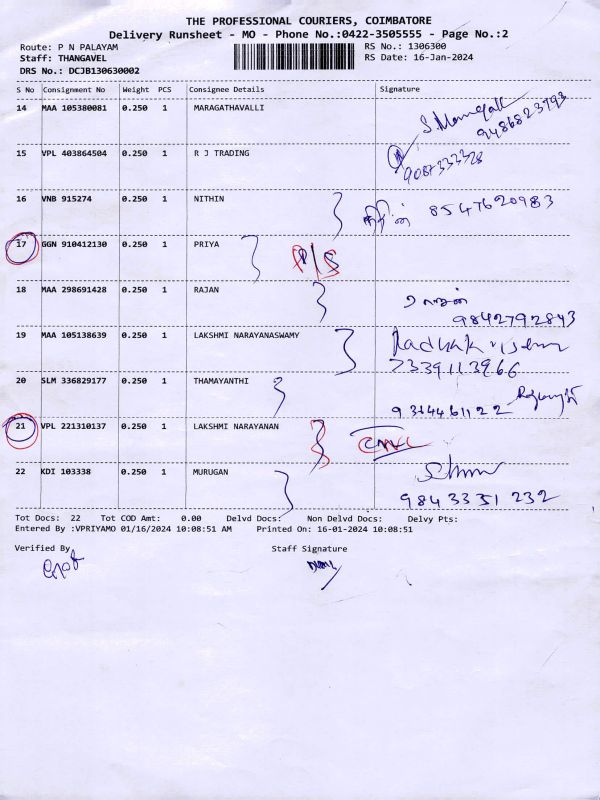 THE PROFESSIONAL COURIERS, COIMBATORE
Delivery Runsheet - MO - Phone No.:0422-3505555 - Page No.:2
Route: P N PALAYAM RS No.: 1306300
Staff: THANGAVEL RS Date: 16-Jan-2024
DRS No.: DCJB130630002
S No Consignment No Weight PCS Consignee Details Signature
14 MAA 105380081 0.250 1 MARAGATHAVALLI
9486823793
15 VPL 403864504 0.250 1 R J TRADING
9087333328
16 VNB 915274 0.250 1 NITHIN நிதின் 8547620983
17 GGN 910412130 0.250 1 PRIYA P/S
18 MAA 298691428 0.250 1 RAJAN ராஜன்
9842792843
19 MAA 105138639 0.250 1 LAKSHMI NARAYANASWAMY
7339113966
20 SLM 336829177 0.250 1 THAMAYANTHI
9344461122
21 VPL 221310137 0.250 1 LAKSHMI NARAYANAN
22 KDI 103338 0.250 1 MURUGAN
9843351232
Tot Docs: 22 Tot COD Amt: 0.00 Delvd Docs: Non Delvd Docs: Delvy Pts:
Entered By :VPRIYAMO 01/16/2024 10:08:51 AM Printed On: 16-01-2024 10:08:51
Verified By Staff Signature